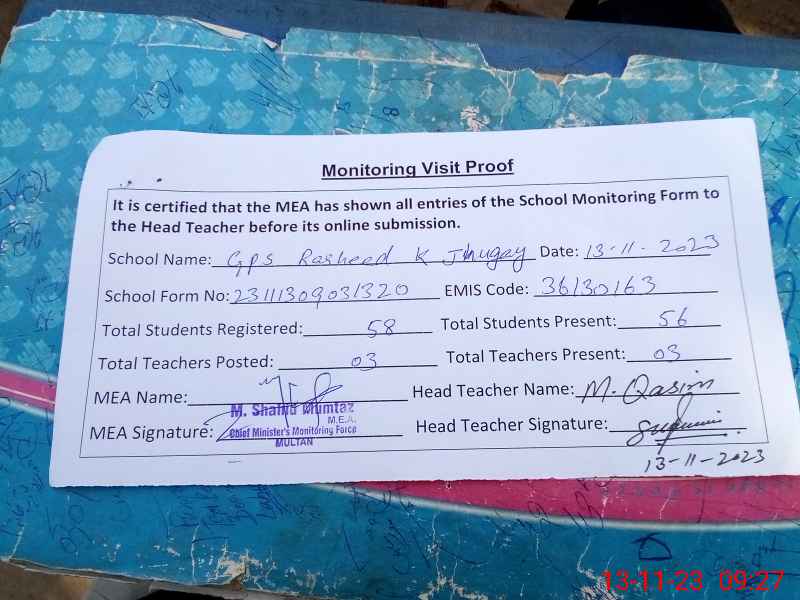 Monitoring Visit Proof
It is certified that the MEA has shown all entries of the School Monitoring Form to
the Head Teacher before its online submission.
School Name: GPS Rasheed K Jhugay Date: 13-11-2023
School Form No: 23111309031320 EMIS Code: 36130163
Total Students Registered: 58 Total Students Present: 56
Total Teachers Posted: 03 Total Teachers Present: 03
MEA Name: Head Teacher Name: M. Qasim
M. Shahid Mumtaz
M.E.A.
MEA Signature: Chief Minister's Monitoring Force Head Teacher Signature:
MULTAN
13-11-2023
13-11-23 09:27